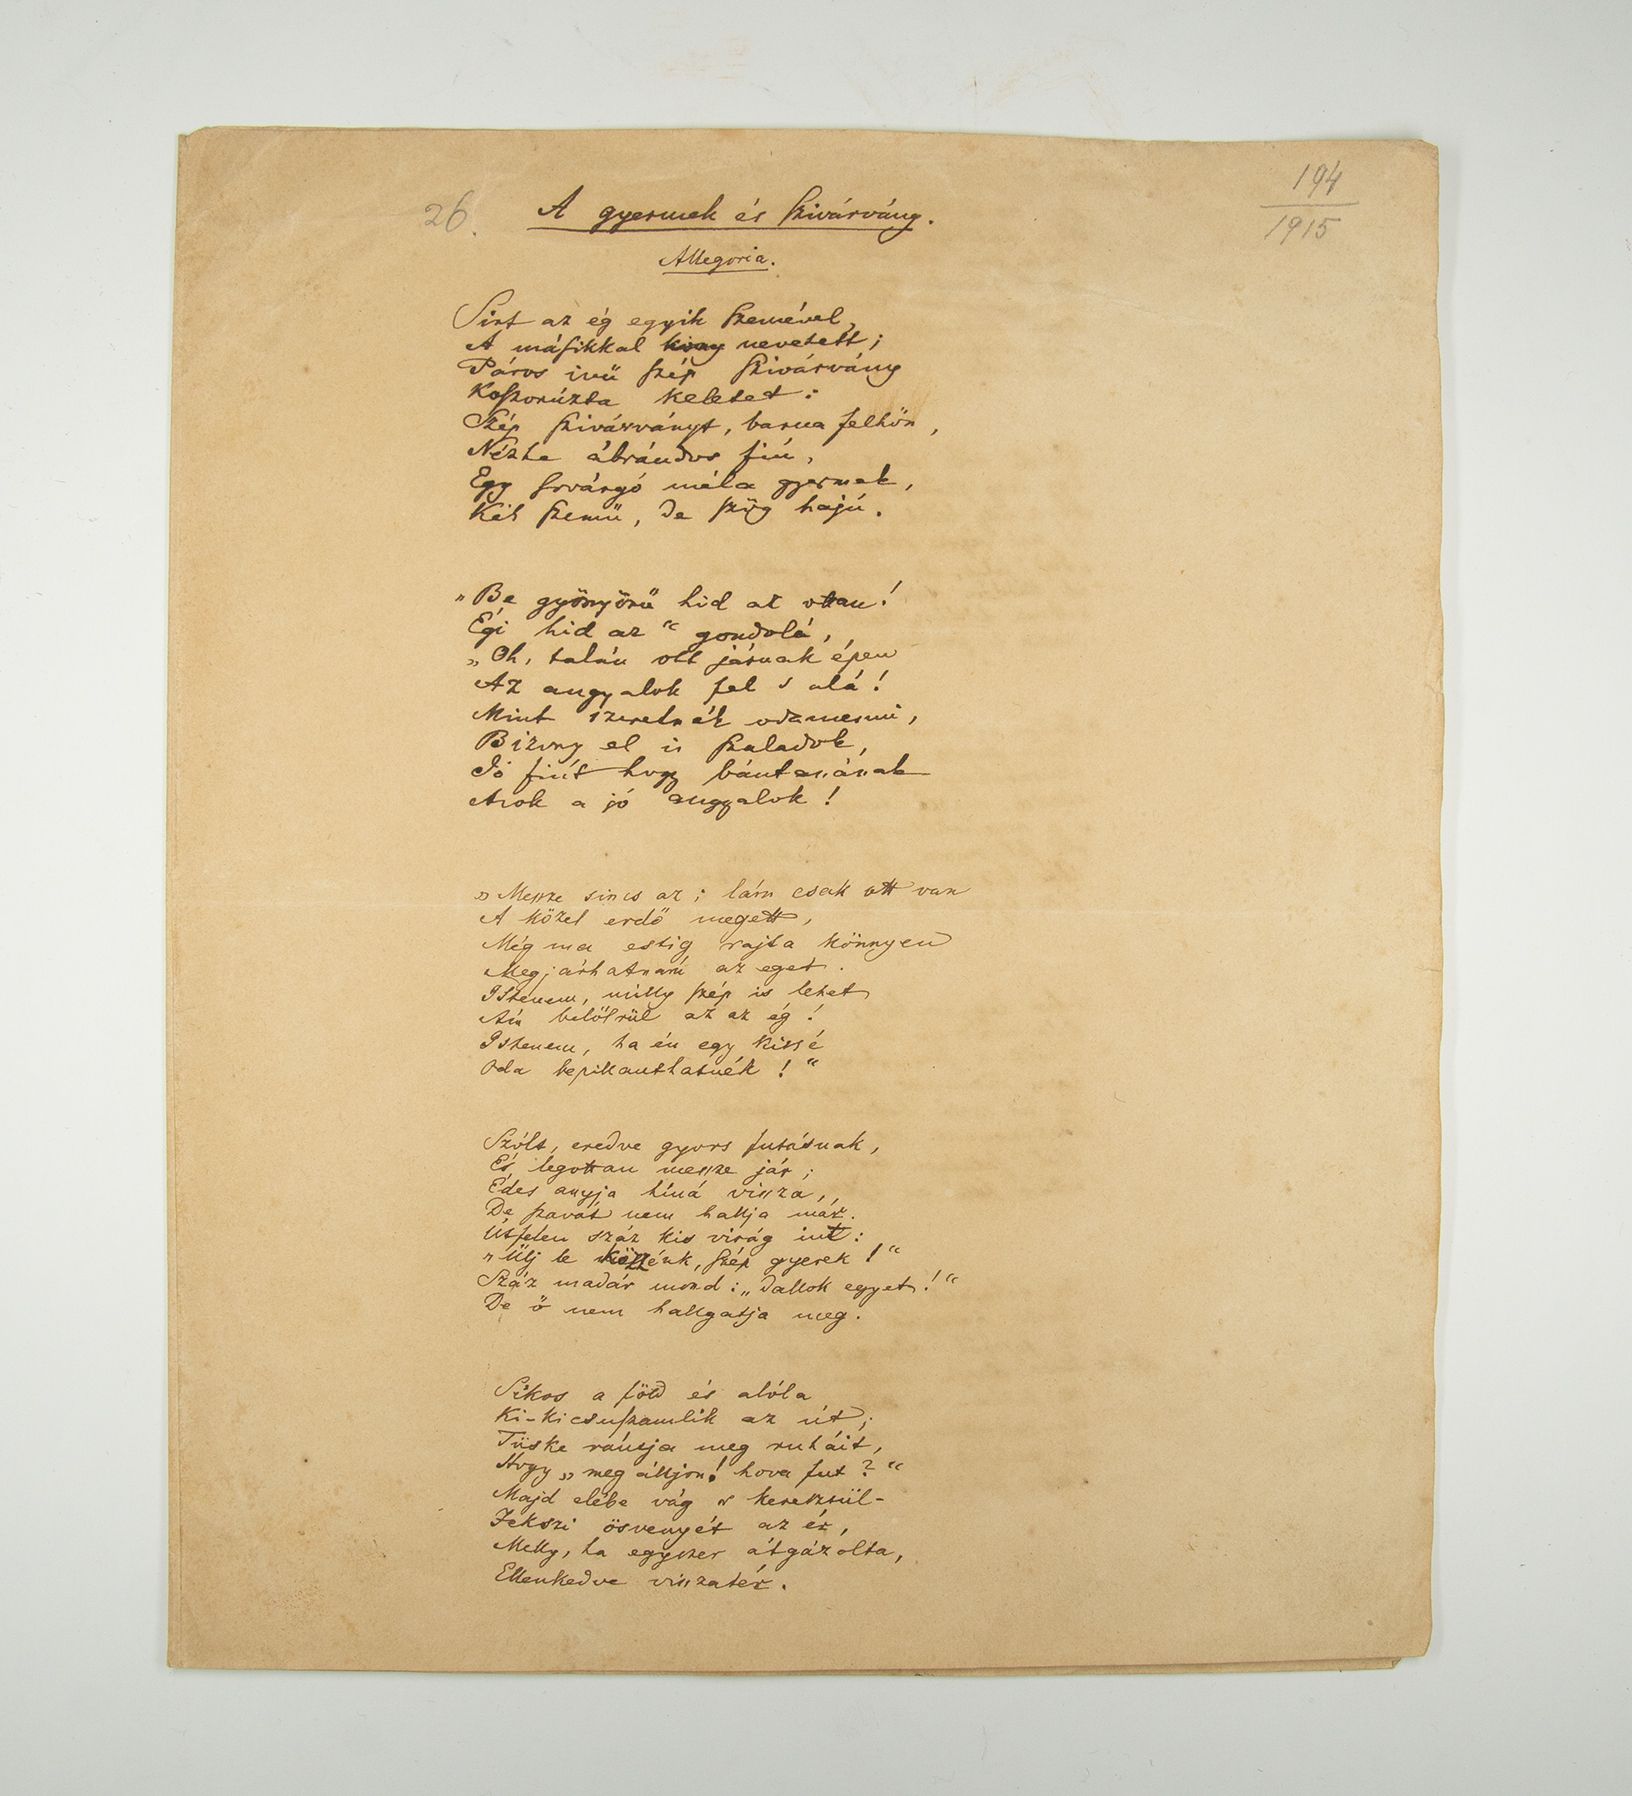 26.
A gyermek és szivárvány.
194
1915
Allegoria.
Sirt az ég egyik szemével,
A másikkal nevetett;
Páros ivü szép szivárvány
Koszorúzta keletet:
Szép szivárványt, barna felhőn,
Nézte ábrándos fiú,
Egy sovárgó méla gyermek,
Kék szemü, de szög hajú.
„Be gyönyörü hid az ottan!
Égi hid az“ gondolá,
„Oh, talán ott járnak épen
Az angyalok fel s alá!
Mint szeretnék odamenni,
Bizony el is szaladok,
Jó fiút hogy bántanának
Azok a jó angyalok!
„Messze sincs az; lám csak ott van
A közel erdő megett,
Még ma estig rajta könnyen
Megjárhatnám az eget.
Istenem, milly szép is lehet
Ám belőlrül az az ég!
Istenem, ha én egy kissé
Oda bepillanthatnék!“
Szólt, eredve gyors futásnak,
És legottan messze jár;
Édes anyja híná vissza,
De szavát nem hallja már.
Útfelen száz kis virág int:
„Ülj le közzénk, szép gyerek!“
Száz madár mond: „dallok egyet!“
De ő nem hallgatja meg.
Síkos a föld és alóla
Ki-kicsuszamlik az út;
Tüske rántja meg ruháit,
Hogy „megálljon! hova fut?“
Majd elébe vág s keresztül-
Fekszi ösvenyét az ér,
Melly, ha egyszer átgázolta,
Ellenkedve visszatér.